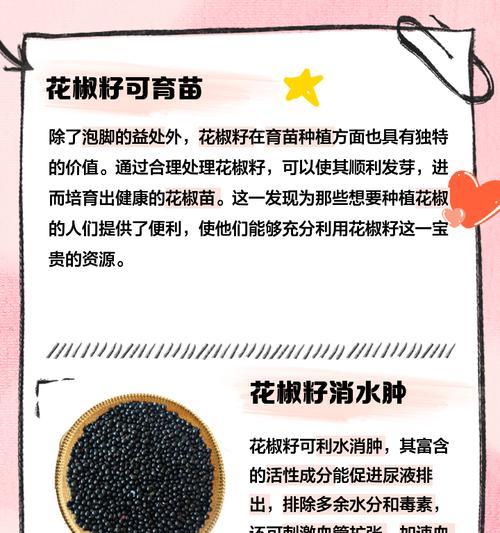 花椒籽可育苗
除了泡脚的益处外，花椒籽在育苗种植方面也具有独特
的价值。通过合理处理花椒籽，可以使其顺利发芽，进
而培育出健康的花椒苗。这一发现为那些想要种植花椒
的人们提供了便利，使他们能够充分利用花椒籽这一宝
贵的资源。
花椒籽消水肿
花椒籽可利水消肿，其富含
的活性成分能促进尿液排
出，排除多余水分和毒素，
还可刺激血管扩张，加速血